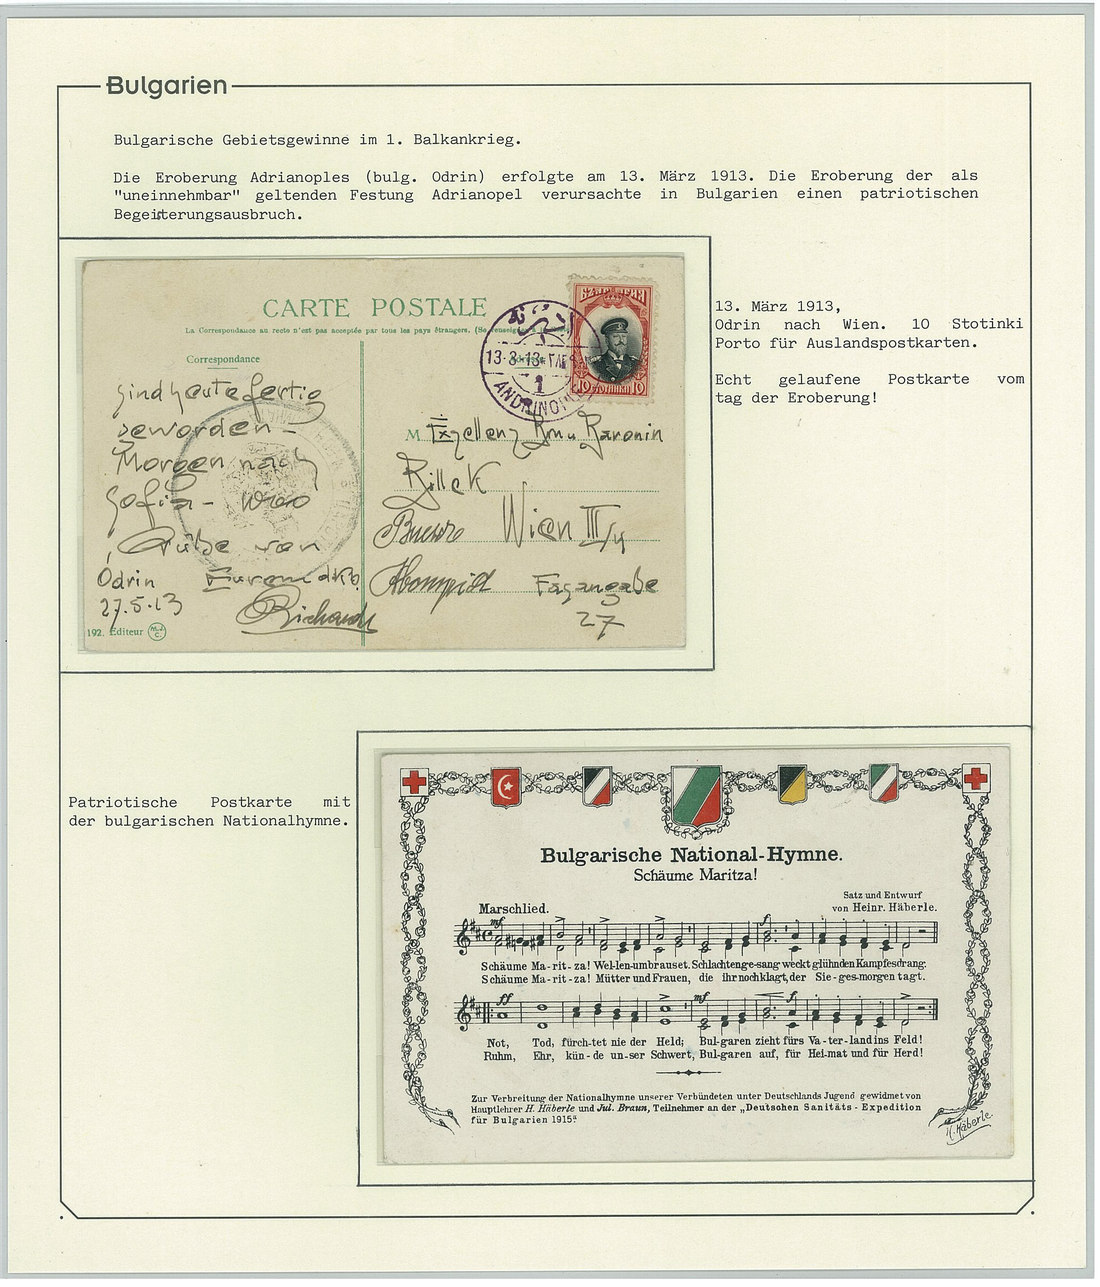 Bulgarien
Bulgarische Gebietsgewinne im 1. Balkankrieg.
Die Eroberung Adrianoples (bulg. Odrin) erfolgte am 13. März 1913. Die Eroberung der als
"uneinnehmbar" geltenden Festung Adrianopel verursachte in Bulgarien einen patriotischen
Begeisterungsausbruch.
CARTE POSTALE
La Correspondance au recto n'est pas acceptée par tous les pays étrangers. (Se renseigner à la
Correspondance
13-3-13
ANDRINOPLE
1
10 10
Sind heute fertig
geworden –
Morgen nach
Sofia –
Grüße von
Odrin
27.5.13
Richard
M
Exzellenz Baronin
Wien III/4
27
192. Editeur M.J.C.
13. März 1913,
Odrin nach Wien. 10 Stotinki
Porto für Auslandspostkarten.
Echt gelaufene Postkarte vom
tag der Eroberung!
Patriotische Postkarte mit
der bulgarischen Nationalhymne.
Bulgarische National-Hymne.
Schäume Maritza!
Satz und Entwurf
von Heinr. Häberle.
Marschlied.
mf f
Schäume Ma-rit-za! Wel-len-umbrauset. Schlachtenge-sang weckt glühnden Kampfesdrang.
Schäume Ma-rit-za! Mütter und Frauen, die ihr noch klagt, der Sie-ges-morgen tagt.
ff mf f
Not, Tod, fürch-tet nie der Held; Bul-garen zieht fürs Va-ter-land ins Feld!
Ruhm, Ehr, kün-de un-ser Schwert, Bul-garen auf, für Hei-mat und für Herd!
Zur Verbreitung der Nationalhymne unserer Verbündeten unter Deutschlands Jugend gewidmet von
Hauptlehrer H. Häberle und Jul. Braun, Teilnehmer an der „Deutschen Sanitäts-Expedition
für Bulgarien 1915".
H. Häberle